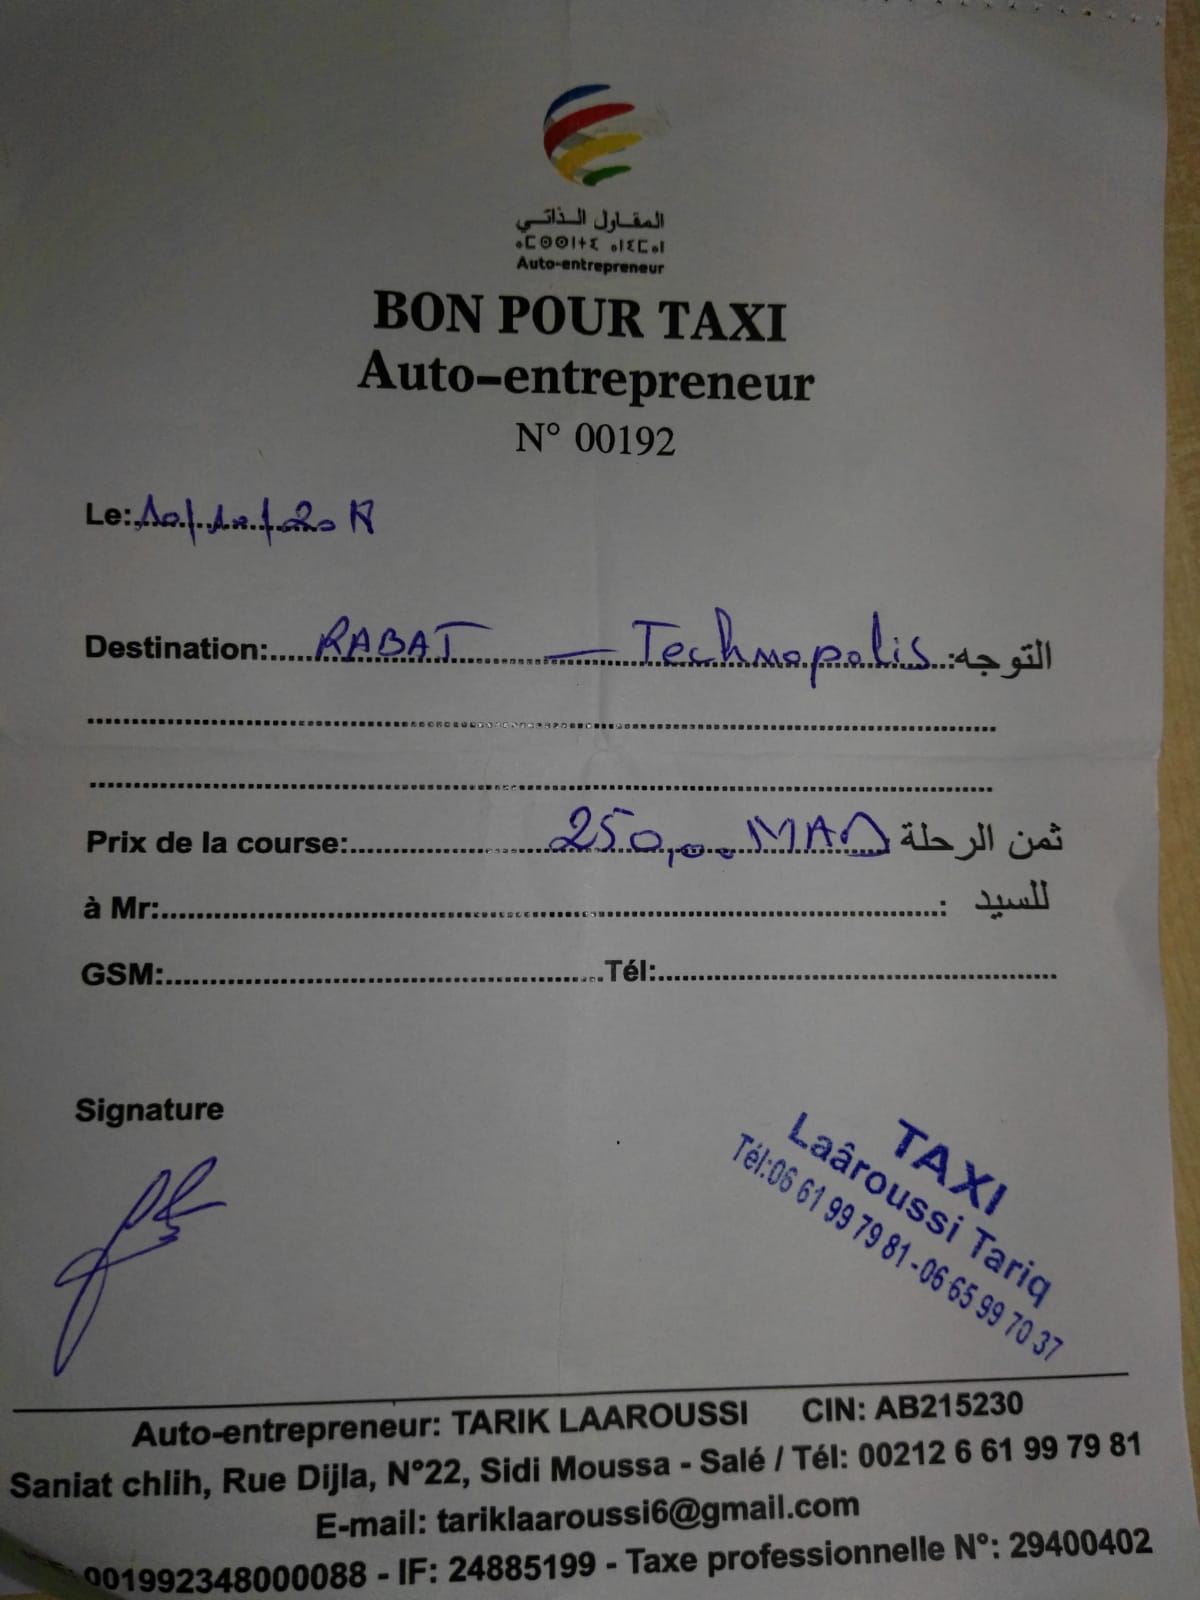 المقاول الذاتي
ⴰⵎⵙⵙⵏⵜⵉ ⴰⵏⵉⵎⴰⵏ
Auto-entrepreneur
BON POUR TAXI
Auto-entrepreneur
N° 00192
Le: 10/10/20
Destination: RABAT — Technopolis التوجه:
Prix de la course: 250,00 MAD ثمن الرحلة
à Mr: للسيد :
GSM: Tél:
Signature
TAXI
Laâroussi Tariq
Tél:06 61 99 79 81-06 65 99 70 37
Auto-entrepreneur: TARIK LAAROUSSI CIN: AB215230
Saniat chlih, Rue Dijla, N°22, Sidi Moussa - Salé / Tél: 00212 6 61 99 79 81
E-mail: tariklaaroussi6@gmail.com
001992348000088 - IF: 24885199 - Taxe professionnelle N°: 29400402